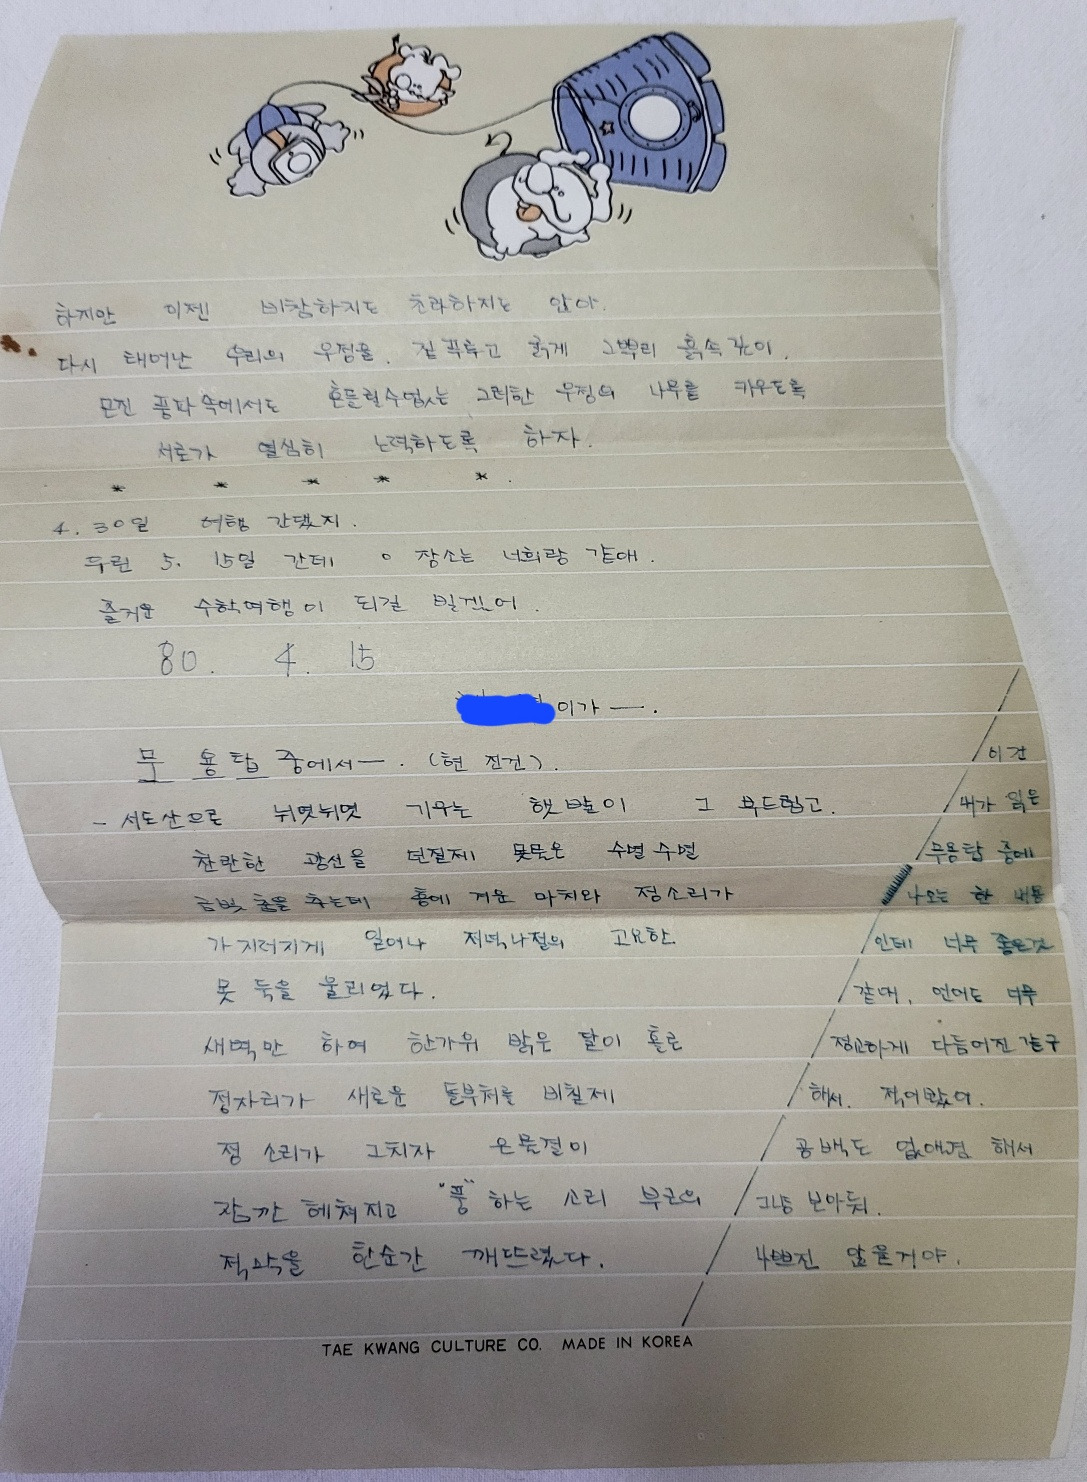 하지만 이젠 비참하지도 초라하지도 않아.
다시 태어난 우리의 우정을. 짙푸르고 굵게 그뿌리 흙속깊이.
모진 풍파속에서도 흔들릴수없는 그러한 우정의 나무를 키우도록
서로가 열심히 노력하도록 하자.
* * * * * .
4. 30일 여행 간댔지.
우린 5. 15일 간데 장소는 너희랑 같애.
즐거운 수학여행이 되길 빌겠어.
80. 4. 15
이가 ─.
무 용탑 중에서─. (현 진건).
- 서도산으로 뉘엿뉘엿 기우는 햇발이 그 부드럽고.
찬란한 광선을 던질제 못물은 수멸수멸
금빛 춤을 추는데 흥에 겨운 마치와 정소리가
가지러지게 일어나 저녁나절의 고요한
못 둑을 울리었다.
새벽만 하여 한가위 밝은 달이 홀로
정자리가 새로운 돌부처를 비칠제
정 소리가 그치자 은물결이
잠깐 헤쳐지고 "풍" 하는 소리 부근의
적막을 한순간 깨뜨렸다.
이건
내가 읽은
무용탑 중에
나오는 한 내용
인데 너무 좋은것
같애, 언어도 너무
정교하게 다듬어진것같구
해서. 적어봤어.
공백도 없앨겸 해서
그냥 보아둬.
나쁘진 않을거야.
TAE KWANG CULTURE CO. MADE IN KOREA